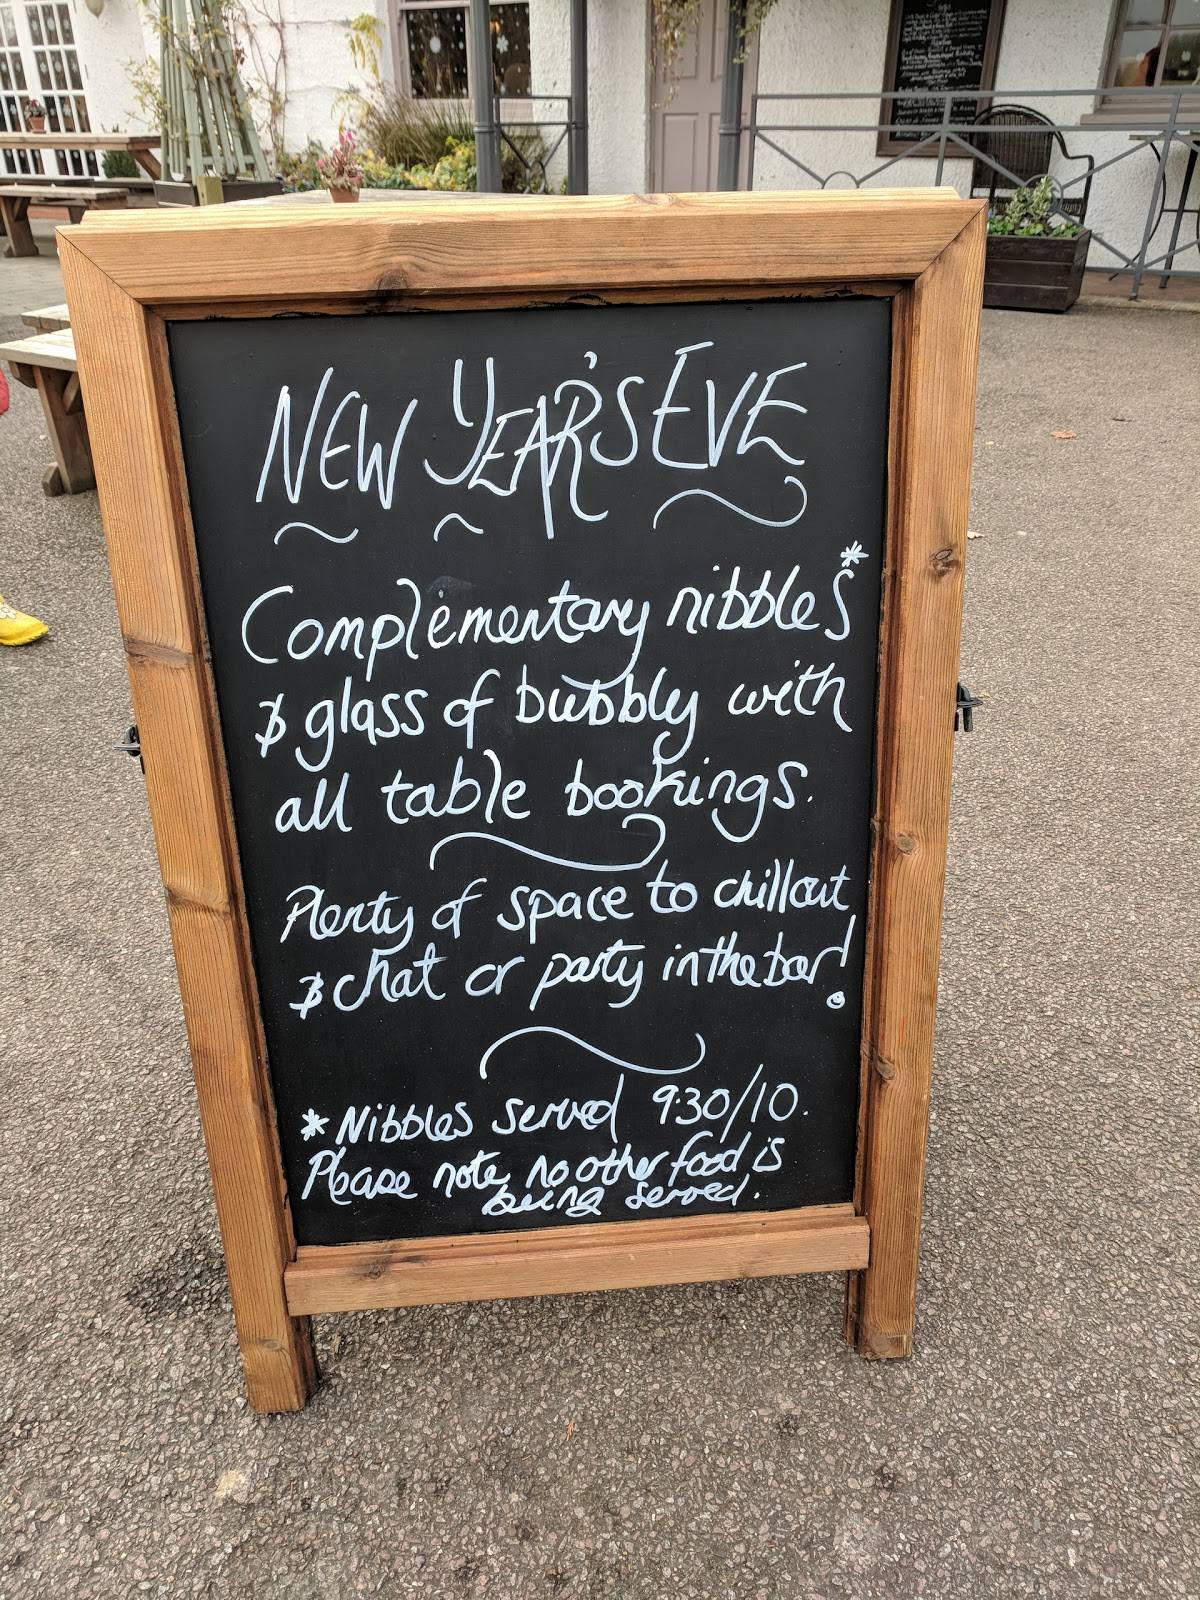 NEW YEAR'S EVE
Complementary nibbles*
& glass of bubbly with
all table bookings.
Plenty of space to chillout
& chat or party in the bar!
*Nibbles served 9.30/10.
Please note no other food is
being served.